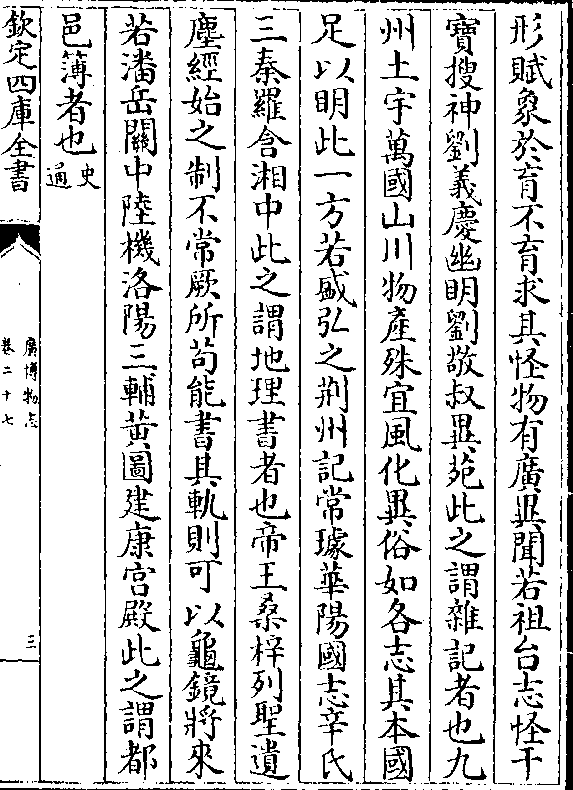 形賦象於育不育求其怪物有廣異聞若祖台志怪干
寶搜神劉義慶幽明劉敬叔異苑此之謂雜記者也九
州土宇萬國山川物產殊宜風化異俗如各志其本國
足以明此一方若盛弘之荆州記常璩華陽國志辛氏
三秦羅含湘中此之謂地理書者也帝王桑梓列聖遺
塵經始之制不常厥所苟能書其軌則可以龜鏡將來
若潘岳關中陸機洛陽三輔黃圖建康宫殿此之謂都
邑薄者也史通
欽定四庫全書
廣博物志
卷二十七
三